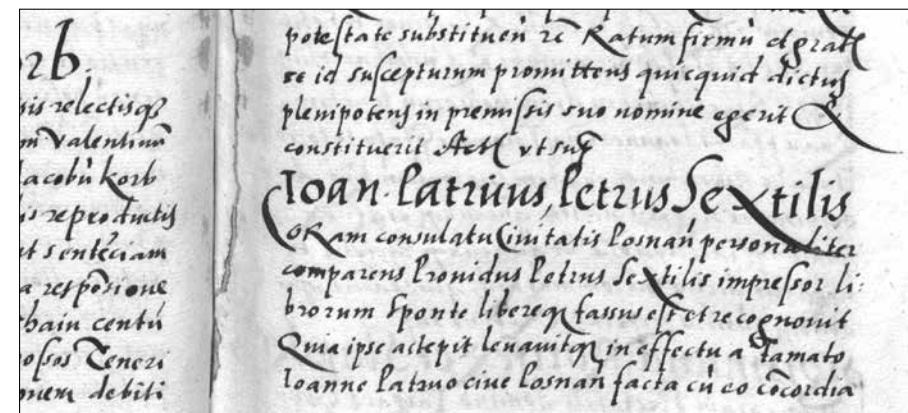 rb.
sis relectisq₃
m Valentinū
acobū Korb
is reproductis
et sentēciam
a respōsione
hain centū
ossos Teneri
onem debiti
potestate substituēn̄ rc̄ Ratum firmū et grat
se id suscepturum promittens quicquid dictus
plenipotens in premissis suo nomine egerit &
constituerit Act vt sup
Ioan. Patruus, Petrus Sextilis
CORam consulatu Ciuitatis Posnan̄ personaliter
comparens Prouidus Petrus Sextilis impressor li:
brorum Sponte libereq₃ fassus est et recognouit
Quia ipse accepit leuauitq₃ in effectu a Famato
Ioanne Patruo ciue Posnan̄ facta cū eo cōcordia